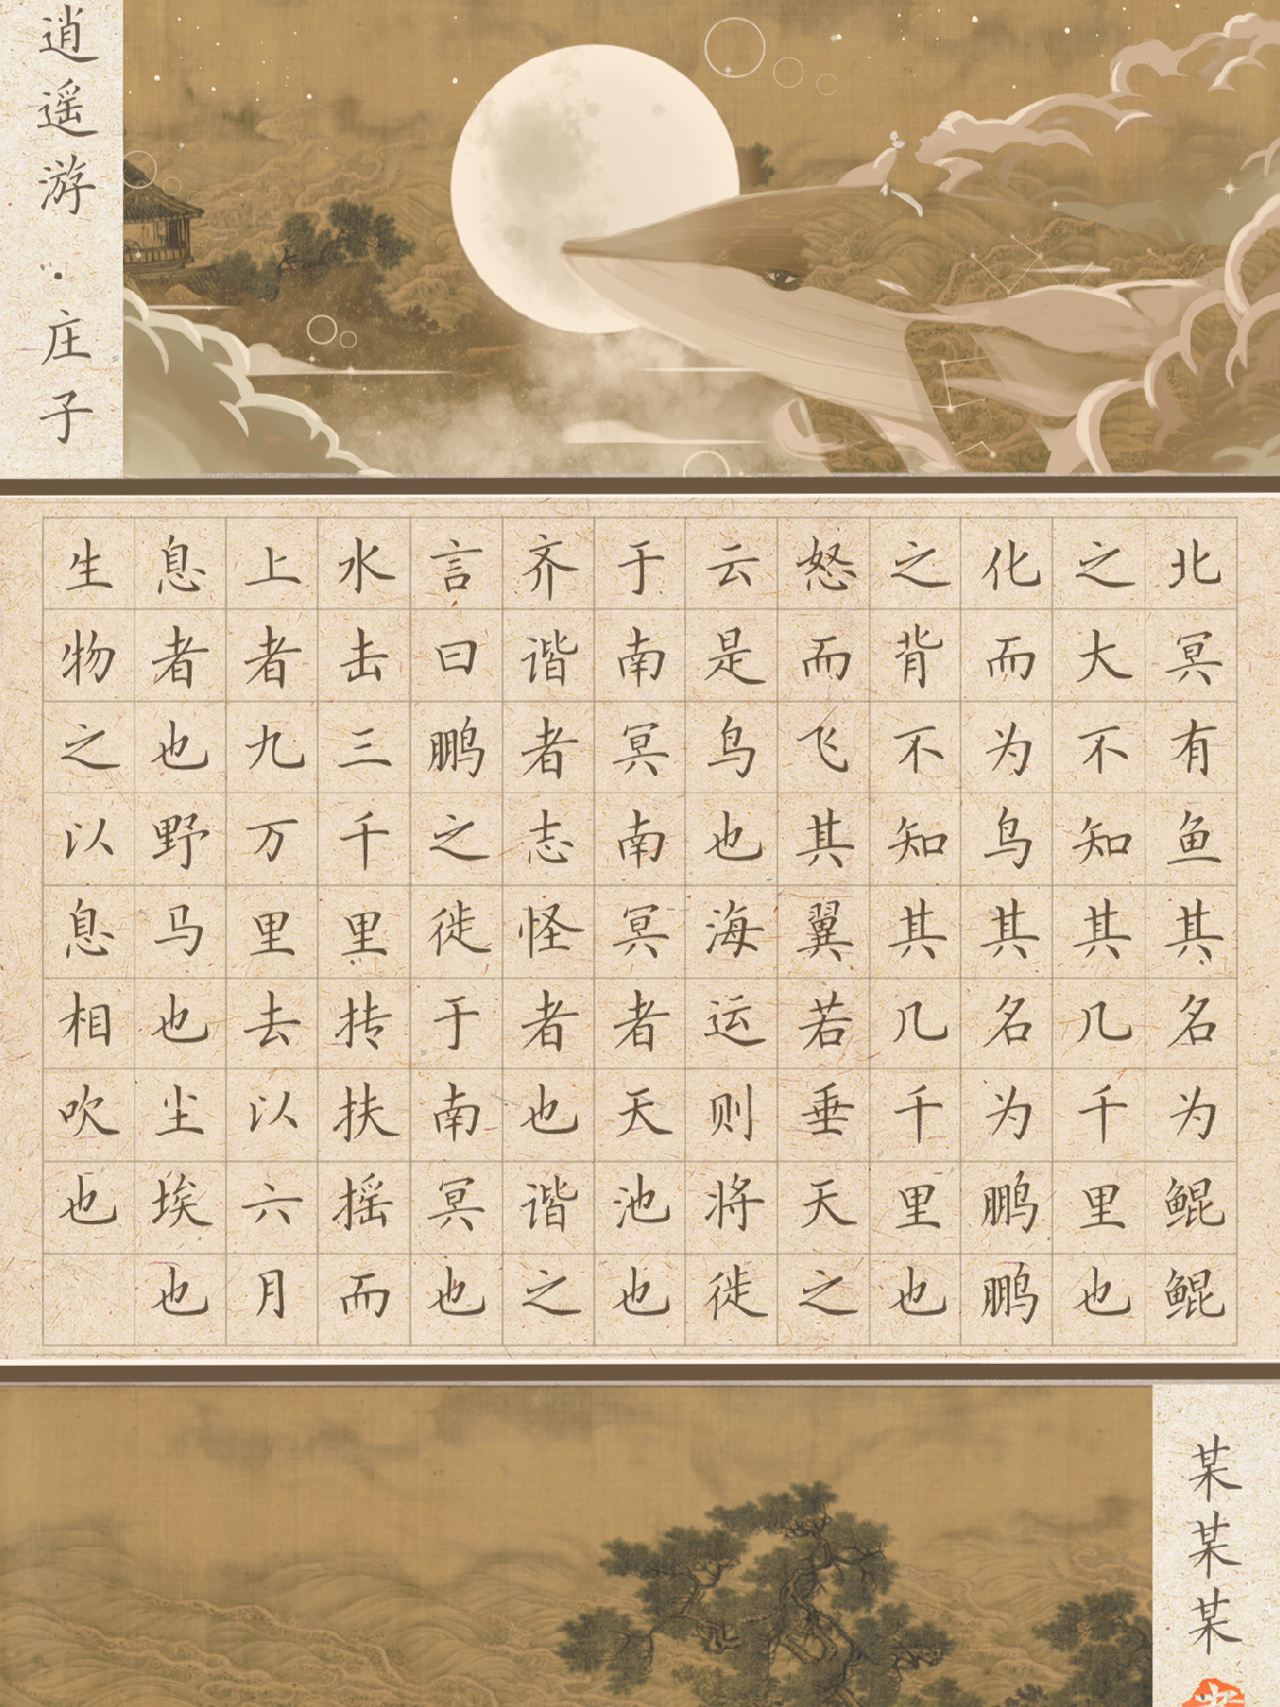 逍遥游·庄子
北冥有鱼其名为鲲鲲
之大不知其几千里也
化而为鸟其名为鹏鹏
之背不知其几千里也
怒而飞其翼若垂天之
云是鸟也海运则将徙
于南冥南冥者天池也
齐谐者志怪者也谐之
言曰鹏之徙于南冥也
水击三千里抟扶摇而
上者九万里去以六月
息者也野马也尘埃也
生物之以息相吹也
某某某